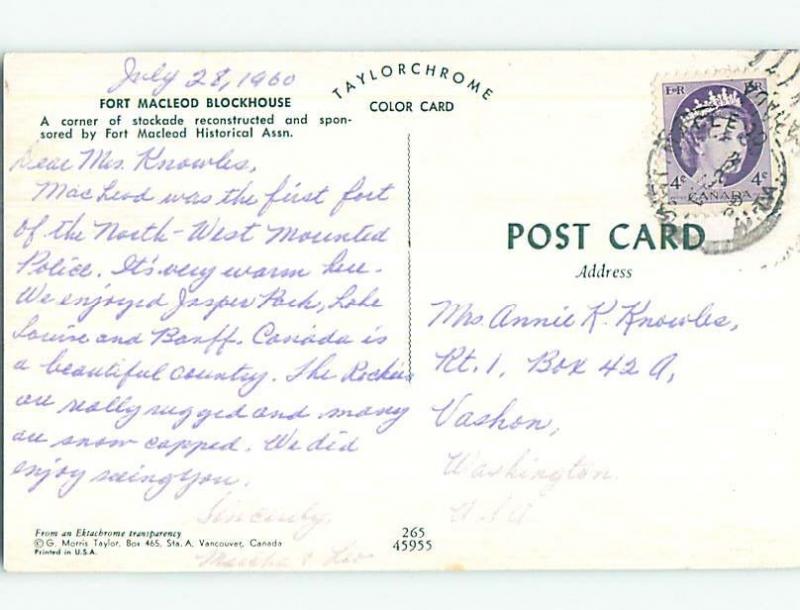 July 28, 1960
FORT MACLEOD BLOCKHOUSE
A corner of stockade reconstructed and spon-
sored by Fort Macleod Historical Assn.
Dear Mrs. Knowles,
MacLeod was the first fort
of the North-West Mounted
Police. It's very warm here.
We enjoyed Jasper Park, Lake
Louise and Banff. Canada is
a beautiful country. The Rockies
are really rugged and many
are snow capped. We did
enjoy seeing you.
Sincerely,
Martha &
From an Ektachrome transparency
© G. Morris Taylor, Box 465, Sta. A, Vancouver, Canada
Printed in U.S.A.
TAYLORCHROME
COLOR CARD
265
45955
E R
4¢ 4¢
CANADA
POST CARD
Address
Mrs. Annie K. Knowles,
Rt. 1, Box 42 A,
Vashon,
Washington
U.S.A.